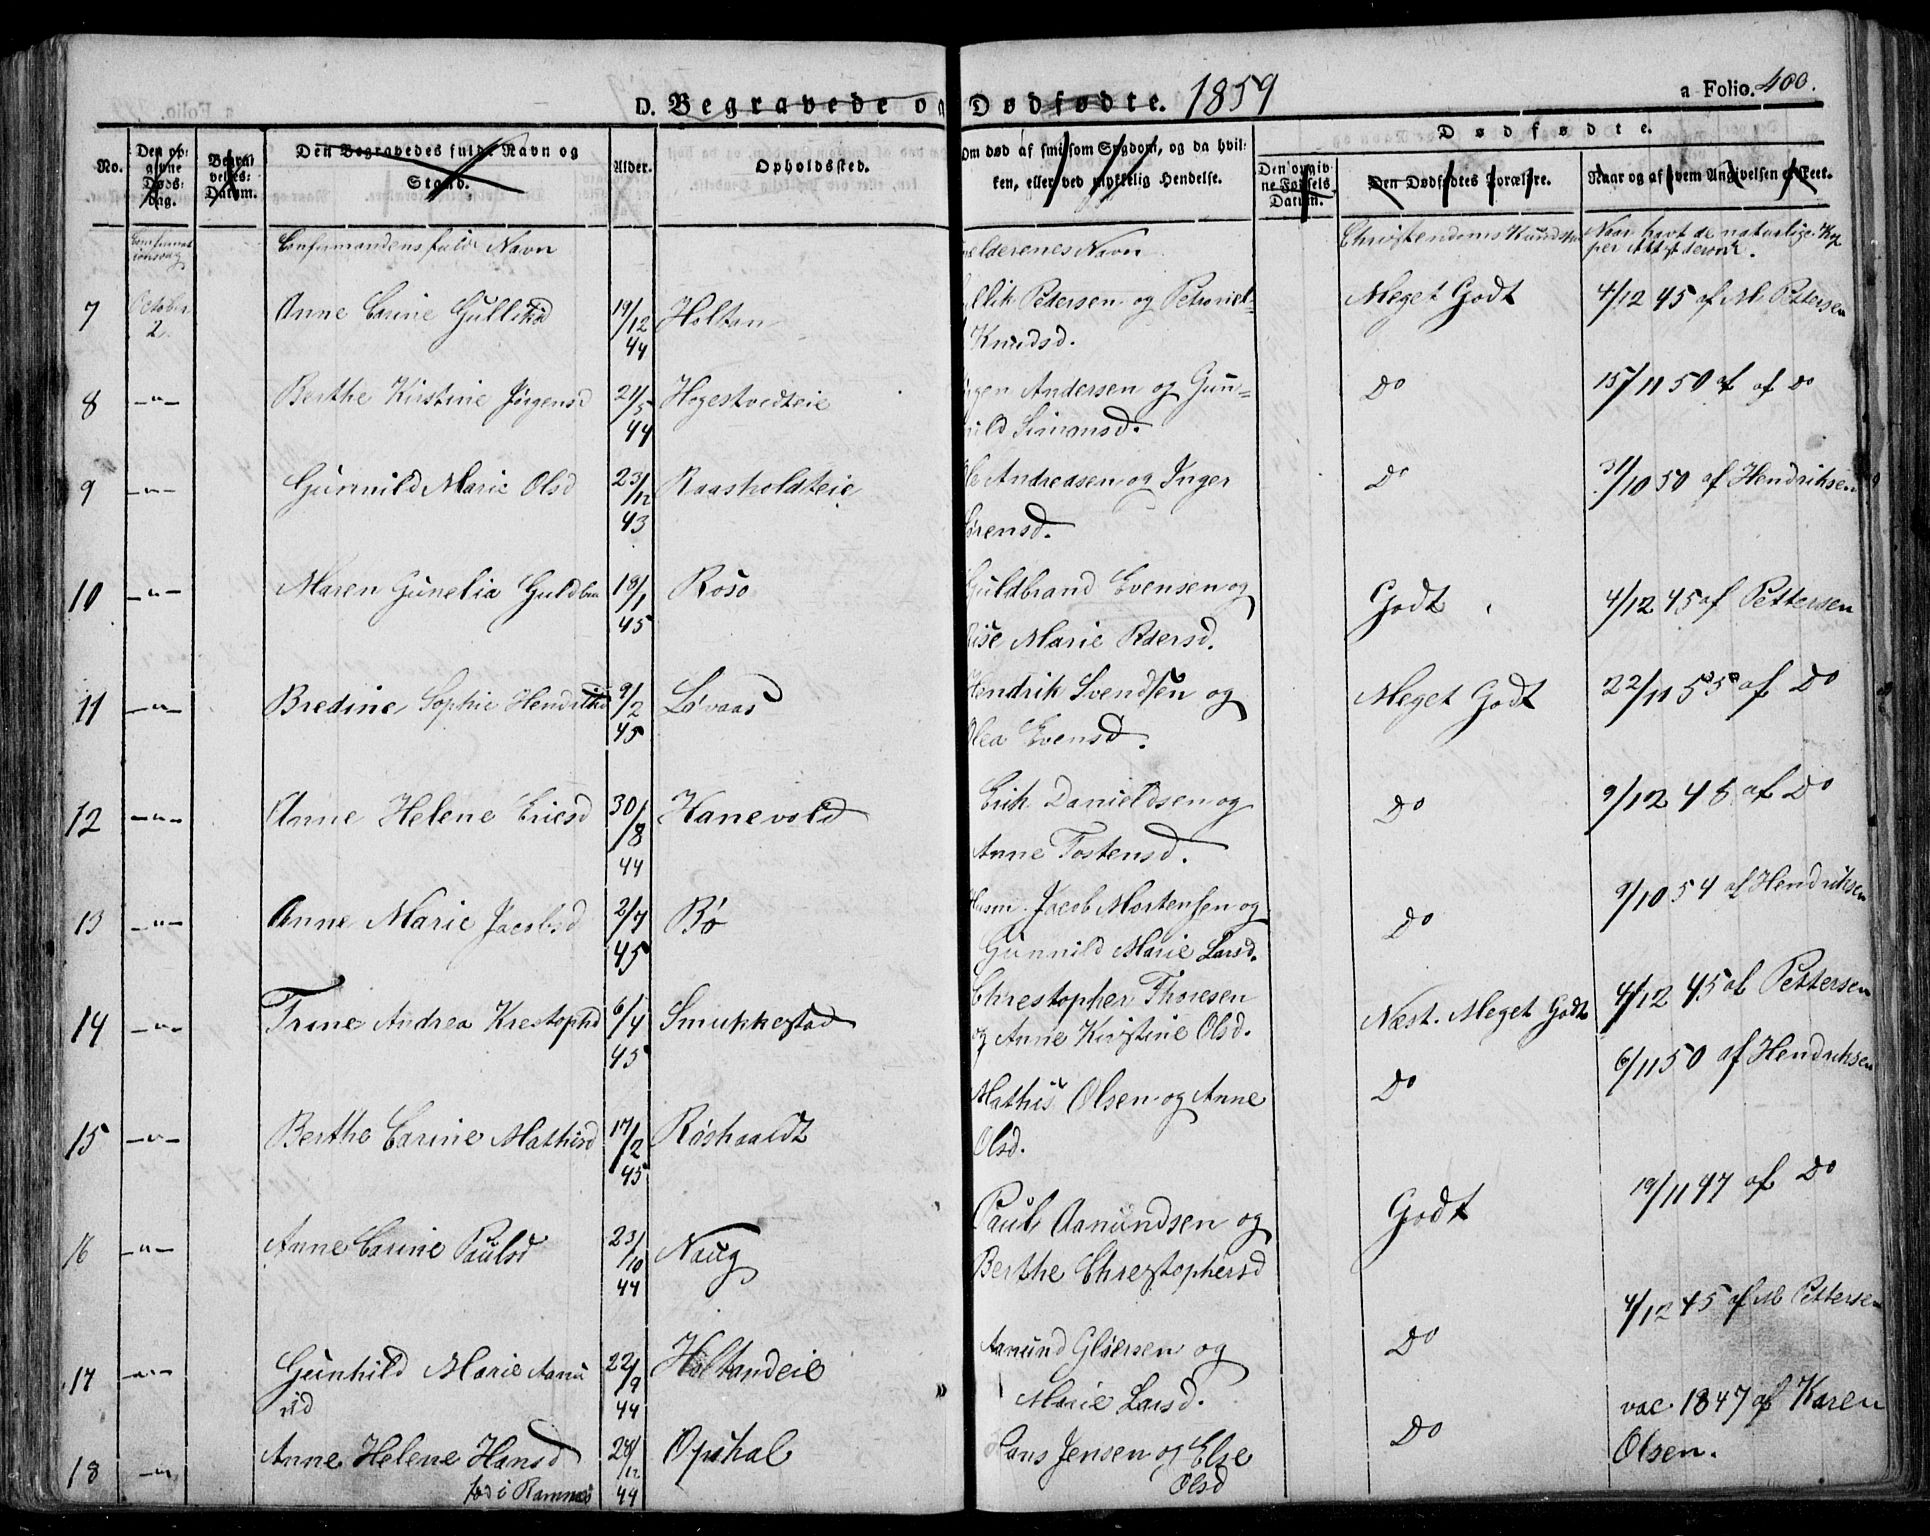 D. Begravede og Dødfødte. 1859
a Folio. 400.
No.
Den op-
givne
Døds-
dag.
Begra-
velses-
Datum.
Den Begravedes fulde Navn og
Stand.
Alder.
Opholdssted.
Om død af smitsom Sygdom, og da hvil-
ken, eller ved ulykkelig Hendelse.
Dødfødte.
Den opgiv-
ne Fødsels
Datum.
Den Dødfødtes Forældre.
Naar og af hvem Angivelsen er skeet.
Confirmandens fulde Navn
Forælderenes Navn
Christendoms Kundsk
Naar havt de naturlige Kop
per Attest derom.
7 October 2. Anne Carine Gulliksd 19/12 44 Holtan
Gullik Pedersen og Petronel-
Knudsd.
Meget Godt
4/12 45 af M Pettersen
8 -"- Berthe Kirstine Jørgensd 21/5 44 Hogestvedteie
Jørgen Andersen og Gun-
hild Simonsd.
Do
15/11 50 af af Do
9 -"- Gunnild Marie Olsd 23/12 43 Raasholdteie
Ole Andreasen og Inger
Sørensd.
Do
31/10 50 af Hendriksen
10 -"- Maren Gunelia Guldbra 18/1 45 Røsø
Guldbrand Evensen og
Lise Marie Pdersd.
Godt
4/12 45 af Pettersen
11 -"- Bredine Sophie Hendriksd 9/2 45 Løvaas
Hendrik Svendsen og
Olea Evensd.
Meget Godt
22/11 55 af Do
12 -"- Anne Helene Ericsd 30/8 44 Hanevold
Erik Danieldsen og
Anne Tostensd.
Do
9/12 48 af Do
13 -"- Anne Marie Jacobsd 2/7 45 Bø
Husm. Jacob Mortensen og
Gunnild Marie Larsd.
Do
9/10 54 af Hendriksen
14 -"- Trine Andrea Krestophd 6/4 45 Smukkestad
Chrestopher Thoresen
og Anne Kirstine Olsd.
Næst. Meget Godt
4/12 45 af Pettersen
15 -"- Berthe Carine Mathisd 17/2 45 Røshaaldt
Mathis Olsen og Anne
Olsd.
Do
6/11 50 af Hendriksen
16 -"- Anne Carine Paulsd 23/10 44 Naug
Paul Aamundsen og
Berthe Chrestophersd
Godt
19/11 47 af Do
17 -"- Gunhild Marie Aamu 22/9 44 Holtandeie
nd
Aamund Gløersen og
Marie Larsd.
Do
4/12 45 af M Pettersen
18 -"- Anne Helene Hansd 28/12 44 Opshal
fød i Ramnes
Hans Jensen og Else
Olsd
Do
vac. 1847 af Karen
Olsen.